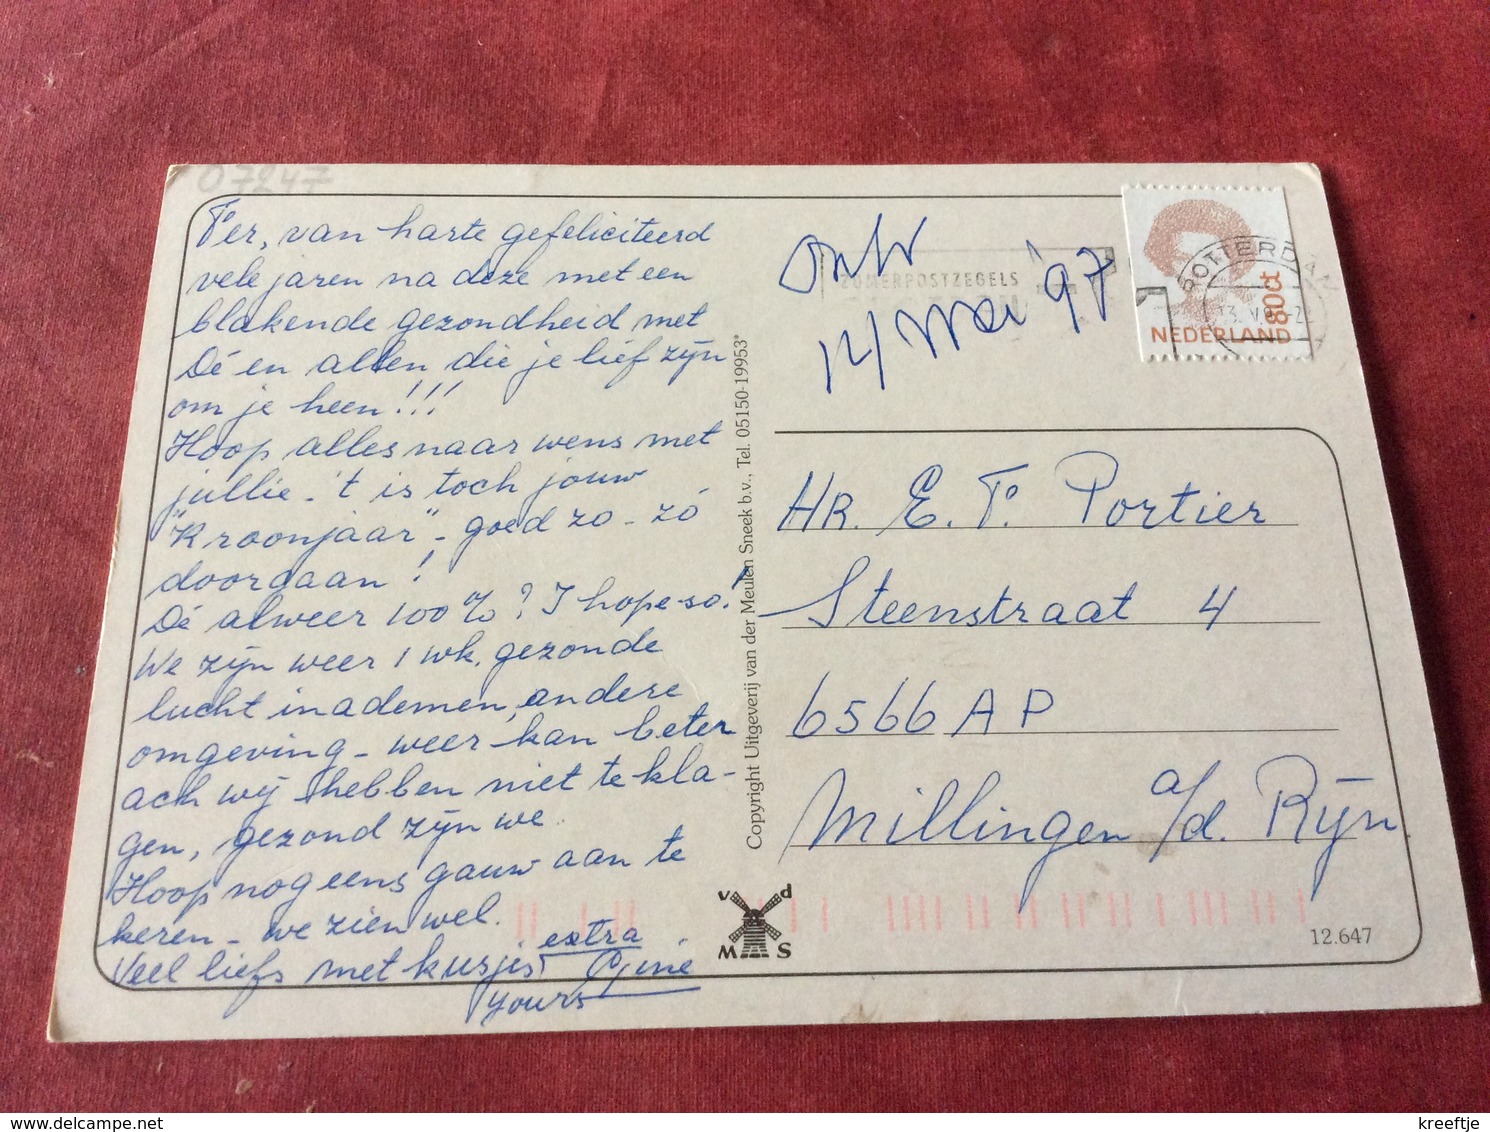 07247
Ter, van harte gefeliciteerd
vele jaren na deze met een
blakende gezondheid met
Dé en allen die je lief zijn
om je heen!!!
Hoop alles naar wens met
jullie - 't is toch jouw
"Kroonjaar" - goed zo - zó
doorgaan!
Dé alweer 100%? I hope so!
We zijn weer 1 wk. gezonde
lucht inademen, andere
omgeving - weer kan beter
ach wij hebben niet te kla-
gen, gezond zijn we.
Hoop nog eens gauw aan te
keren - we zien wel.
Veel liefs met kusjes extra
yours Giné
Copyright Uitgeverij van der Meulen Sneek b.v., Tel. 05150-19953*
v d
M S
Ontv
14/Mei '97
ZOMERPOSTZEGELS
ROTTERDA
13.V.9
80ct
NEDERLAND
HR. E. T. Portier
Steenstraat 4
6566 AP
Millingen a/d. Rijn
12.647
kreeftje